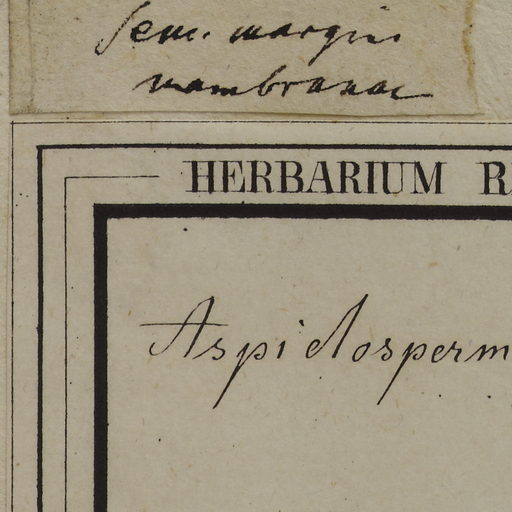 Sem. margin
membranac
HERBARIUM R
Aspidosperm